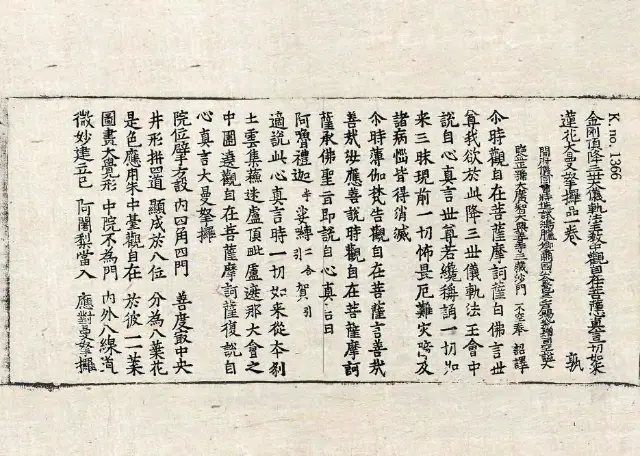 K. no. 1366
金剛頂降三世大儀軌法王教中觀自在菩薩心真言一切如來
蓮花大曼拏攞品一卷 孰
開府儀同三司特進試鴻臚卿肅國公食邑三千戶賜紫贈司空諡大
鑒正號大廣智大興善寺三藏沙門 不空奉 詔譯
尒時觀自在菩薩摩訶薩白佛言世
尊我欲於此降三世儀軌法王會中
說自心真言世尊若纔稱誦一切如
來三昧現前一切怖畏厄難灾
及
諸病惱皆得消滅
尒時薄伽梵告觀自在菩薩言善哉
善哉汝應善說時觀自在菩薩摩訶
薩承佛聖言即說自心真言曰
阿嚕禮迦 半 娑嚩 二合引 賀 引
適說此心真言時一切如來從本剎
土雲集蘇迷盧頂毗盧遮那大會之
中圍遶觀自在菩薩摩訶薩復說自
心真言大曼拏攞
院位擘方設 內四角四門 善度最中央
井形拼界道 顯成於八位 分為八葉花
是色應用朱 中臺觀自在 於彼一一葉
圖畫大覺形 中院不為門 內外八線道
微妙建立已 阿闍梨當入 應對曼拏攞